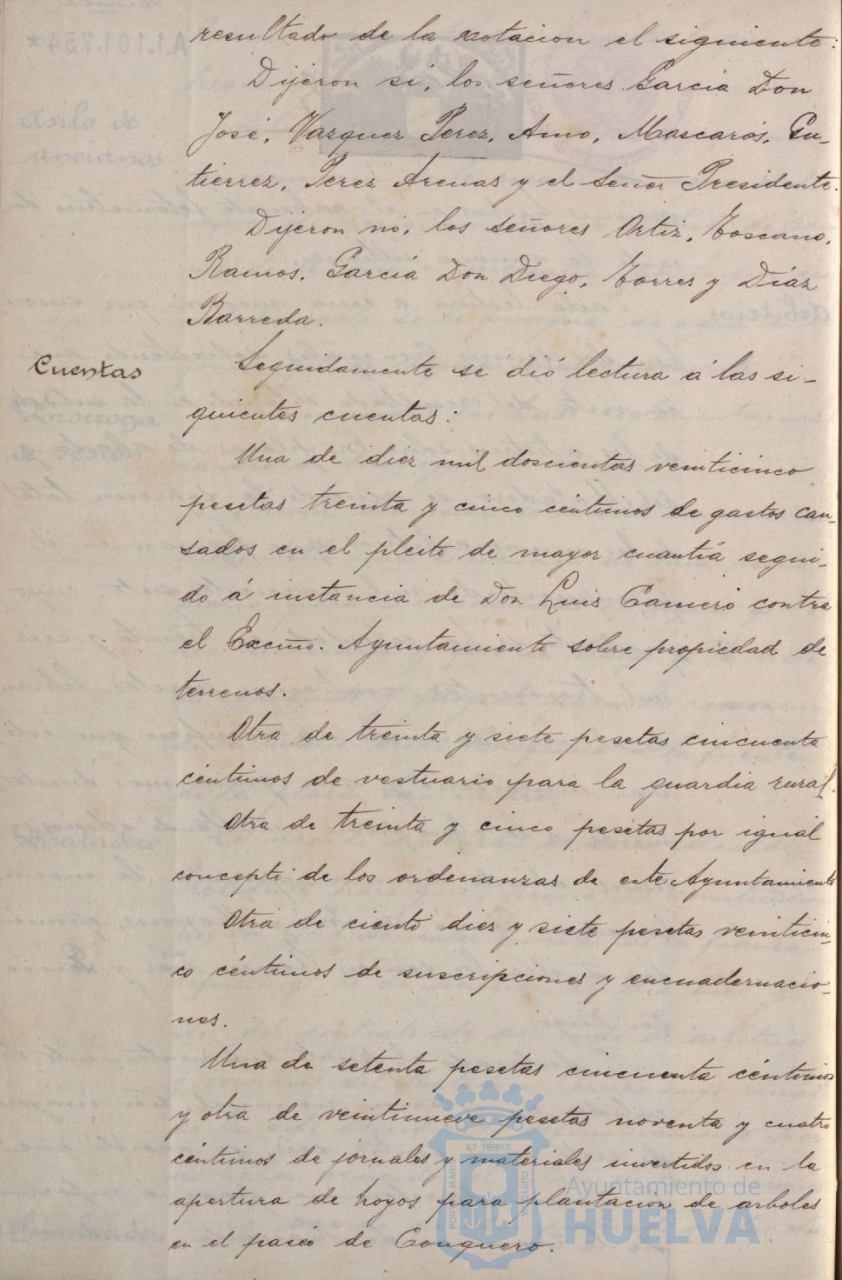 resultado de la votacion el siguiente:
Dijeron sí, los señores García Don
José, Vazquez Perez, Amo, Mascarós, Gu-
tierrez, Perez Arenas y el Señor Presidente.
Dijeron no, los señores Ortiz, Toscano,
Ramos, García Don Diego, Torres y Díaz
Barreda.
Cuentas
Seguidamente se dió lectura á las si-
guientes cuentas:
Una de diez mil doscientas veinticinco
pesetas treinta y cinco céntimos de gastos cau-
sados en el pleito de mayor cuantía segui-
do á instancia de Don Luis Camero contra
el Excmo. Ayuntamiento sobre propiedad de
terrenos.
Otra de treinta y siete pesetas cincuenta
céntimos de vestuario para la guardia rural.
Otra de treinta y cinco pesetas por igual
concepto de los ordenanzas de este Ayuntamiento
Otra de ciento diez y siete pesetas veinticin-
co céntimos de suscripciones y encuadernacio-
nes.
Una de setenta pesetas cincuenta céntimos
y otra de veintinueve pesetas noventa y cuatro
céntimos de jornales y materiales invertidos en la
apertura de hoyos para plantación de arboles
en el paseo de Conquero.
Ayuntamiento de
HUELVA